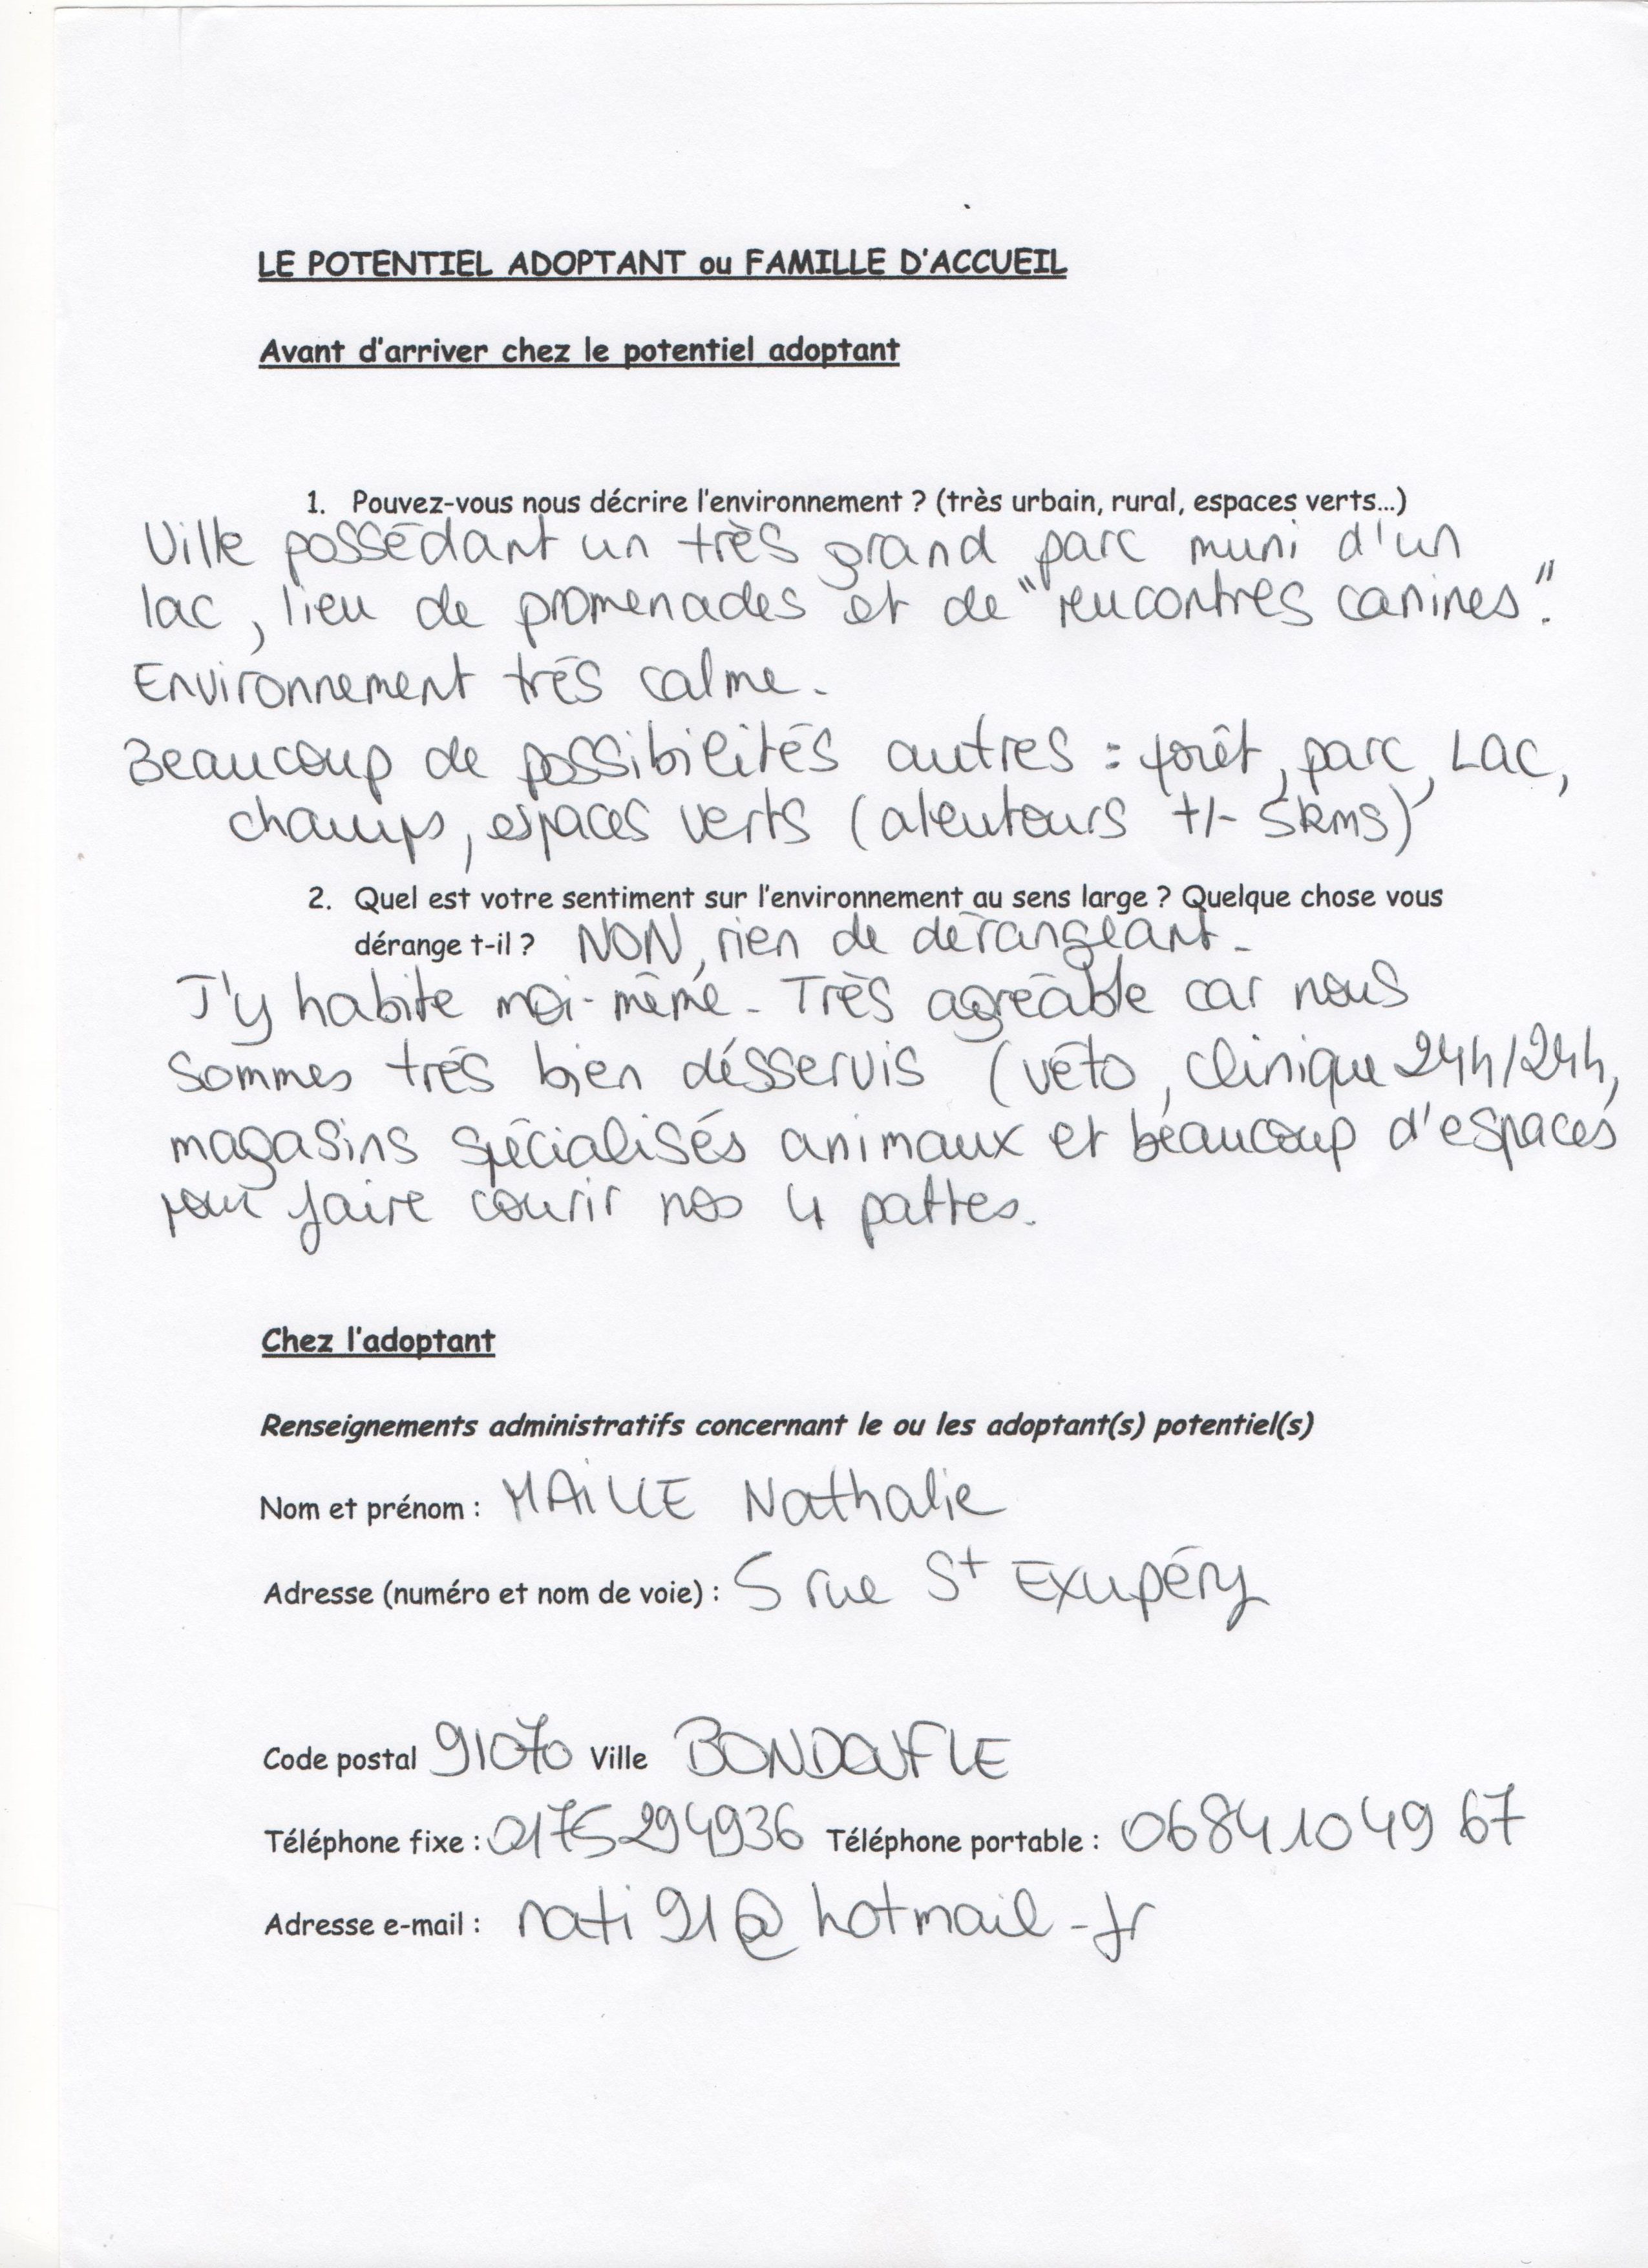 LE POTENTIEL ADOPTANT ou FAMILLE D'ACCUEIL
Avant d'arriver chez le potentiel adoptant
1. Pouvez-vous nous décrire l'environnement ? (très urbain, rural, espaces verts...)
Ville possédant un très grand parc muni d'un
lac, lieu de promenades et de "rencontres canines".
Environnement très calme.
Beaucoup de possibilités autres : forêt, parc, Lac,
champs, espaces verts (alentours +/- 5kms)
2. Quel est votre sentiment sur l'environnement au sens large ? Quelque chose vous
dérange t-il ? NON, rien de dérangeant.
J'y habite moi-même. Très agréable car nous
sommes très bien désservis (véto, clinique 24h/24h,
magasins spécialisés animaux et beaucoup d'espaces
pour faire courir nos 4 pattes.
Chez l'adoptant
Renseignements administratifs concernant le ou les adoptant(s) potentiel(s)
Nom et prénom : MAILLE Nathalie
Adresse (numéro et nom de voie) : 5 rue St Exupéry
Code postal 91070 Ville BONDOUFLE
Téléphone fixe : 0175294936 Téléphone portable : 0684104967
Adresse e-mail : nati91@hotmail.fr